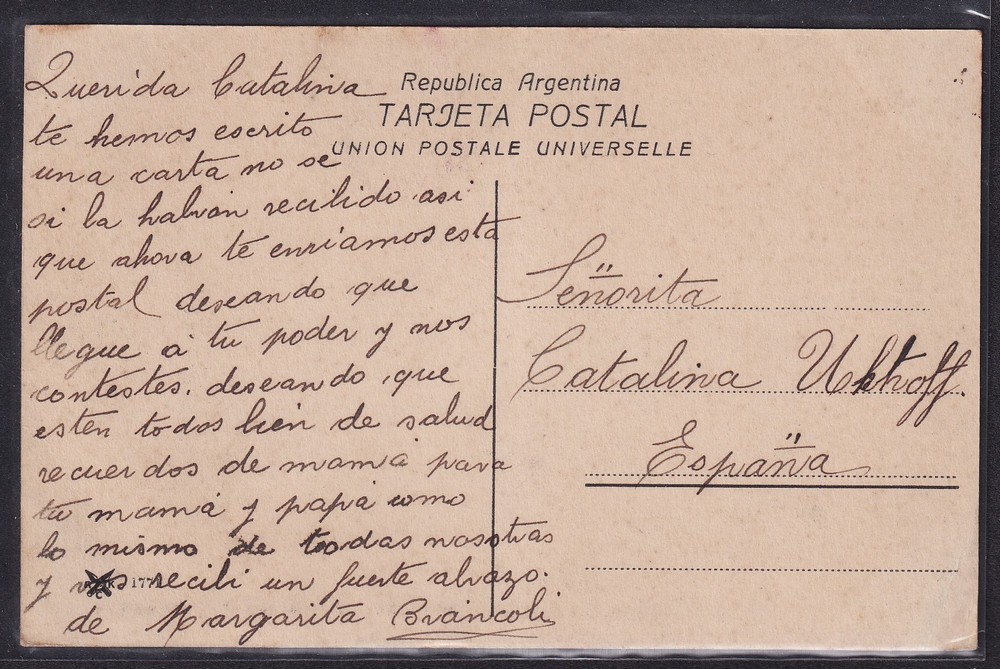 Republica Argentina
TARJETA POSTAL
UNION POSTALE UNIVERSELLE
Querida Catalina
te hemos escrito
una carta no se
si la habran recibido asi
que ahora te enviamos esta
postal deseando que
llegue á tu poder y nos
contestes. deseando que
esten todos bien de salud
recuerdos de mamá para
tu mamá y papá como
lo mismo de todas nosotras
y recibi un fuerte abrazo.
de Margarita Brancoli
Señorita
Catalina Ukthoff.
España